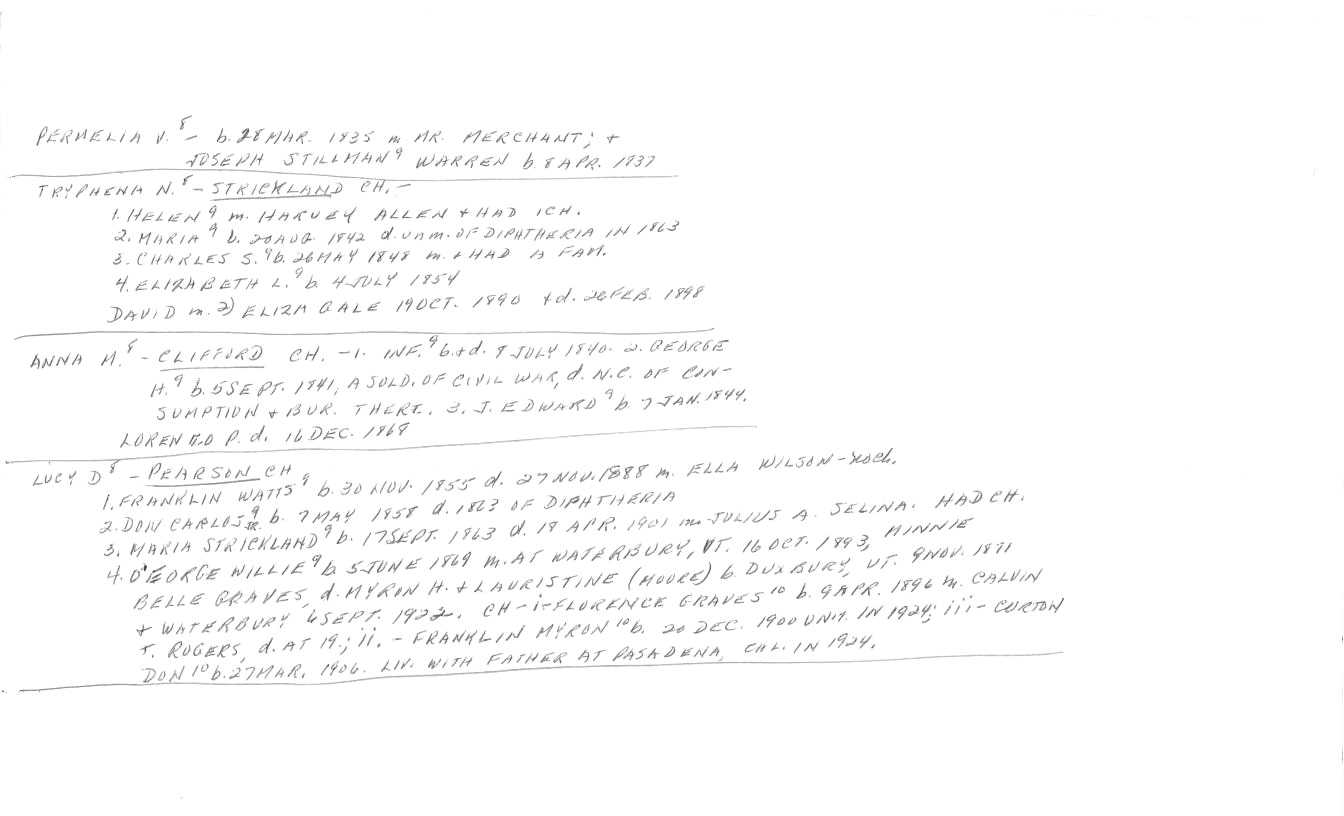 PERMELIA V.⁸ - b. 28 MAR. 1835 m MR. MERCHANT; +
JOSEPH STILLMAN⁹ WARREN b. 8 APR. 1837
TRYPHENA N.⁸ - STRICKLAND CH. -
1. HELEN⁹ m. HARVEY ALLEN + HAD 1 CH.
2. MARIA⁹ b. 20 AUG. 1842 d. unm. OF DIPHTHERIA IN 1863
3. CHARLES S.⁹ b. 26 MAY 1848 m. + HAD A FAM.
4. ELIZABETH L.⁹ b. 4 JULY 1854
DAVID m. 2) ELIZA GALE 19 OCT. 1890 + d. 26 FEB. 1898
ANNA M.⁸ - CLIFFORD CH. - 1. INF.⁹ b. + d. 9 JULY 1840. 2. GEORGE
H.⁹ b. 5 SEPT. 1841, A SOLD. OF CIVIL WAR, d. N.C. OF CON-
SUMPTION + BUR. THERE. 3. J. EDWARD⁹ b. 7 JAN. 1844.
LORENZO P. d. 16 DEC. 1869
LUCY D⁸ - PEARSON CH
1. FRANKLIN WATTS⁹ b. 30 NOV. 1855 d. 27 NOV. 1888 m. ELLA WILSON - no ch.
2. DON CARLOS⁹ JR. b. 7 MAY 1858 d. 1863 OF DIPHTHERIA
3. MARIA STRICKLAND⁹ b. 17 SEPT. 1863 d. 19 APR. 1901 m. JULIUS A. SELINA. HAD CH.
4. GEORGE WILLIE⁹ b. 5 JUNE 1869 m. AT WATERBURY, VT. 16 OCT. 1893, MINNIE
BELLE GRAVES, d. MYRON H. + LAURISTINE (MOORE) b. DUXBURY, VT. 9 NOV. 1871
+ WATERBURY 6 SEPT. 1922. CH - i - FLORENCE GRAVES¹⁰ b. 9 APR. 1896 m. CALVIN
T. ROGERS, d. AT 19.; ii. - FRANKLIN MYRON¹⁰ b. 20 DEC. 1900 UNM. IN 1924; iii - CURTON
DON¹⁰ b. 27 MAR. 1906. LIV. WITH FATHER AT PASADENA, CAL. IN 1924.